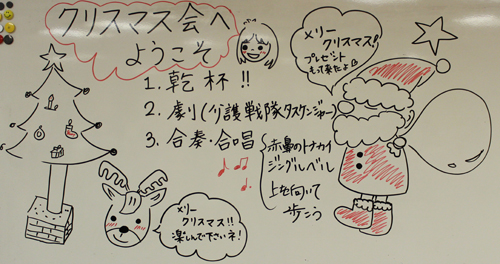 クリスマス会へ
ようこそ
1. 乾杯!!
2. 劇(介護戦隊タスケンジャー)
3. 合奏・合唱
赤鼻のトナカイ
ジングルベル
上を向いて
歩こう
メリー
クリスマス!
プレゼント
もって来たよ
メリー
クリスマス!!
楽しんで下さいネ!